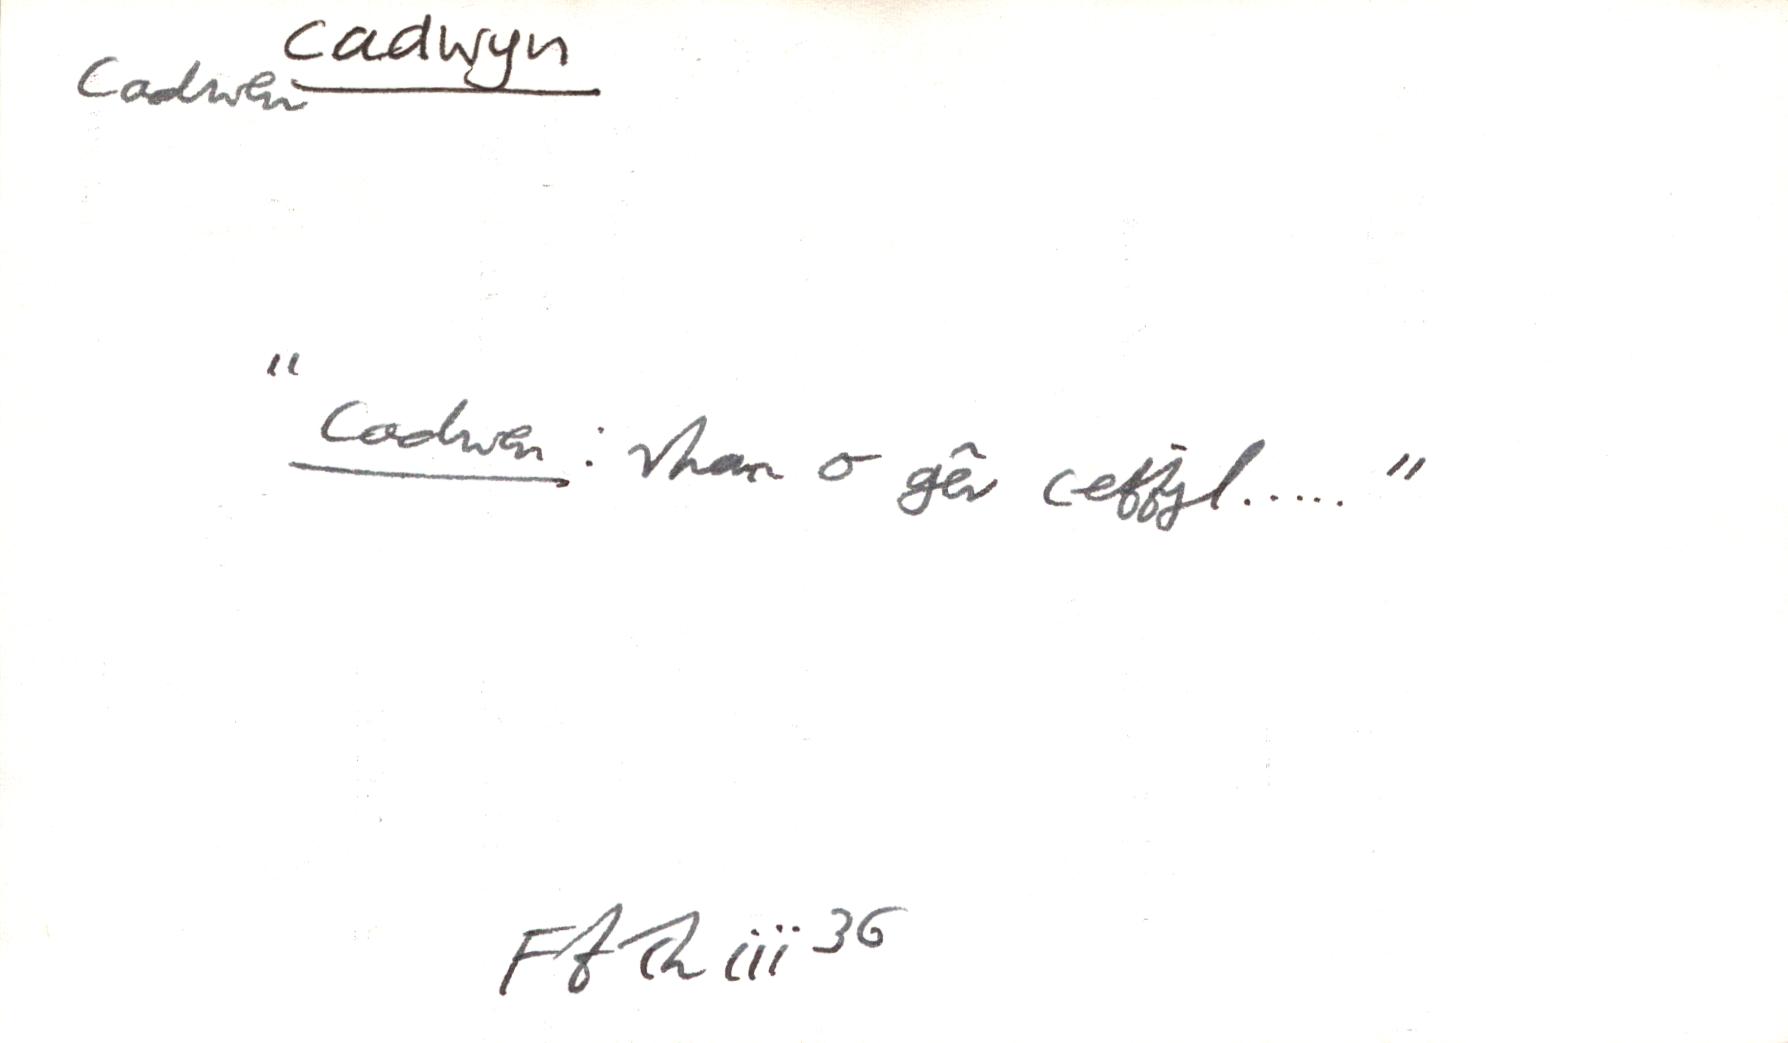 cadwyn
Cadwen
"Cadwen: rhan o gêr ceffyl....."
Ff Th iii 36